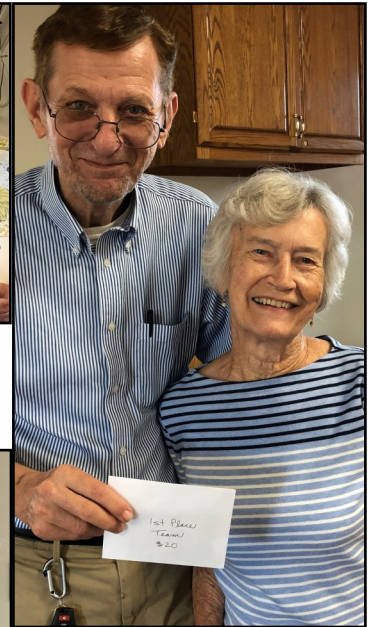 1st Place
Team
$20